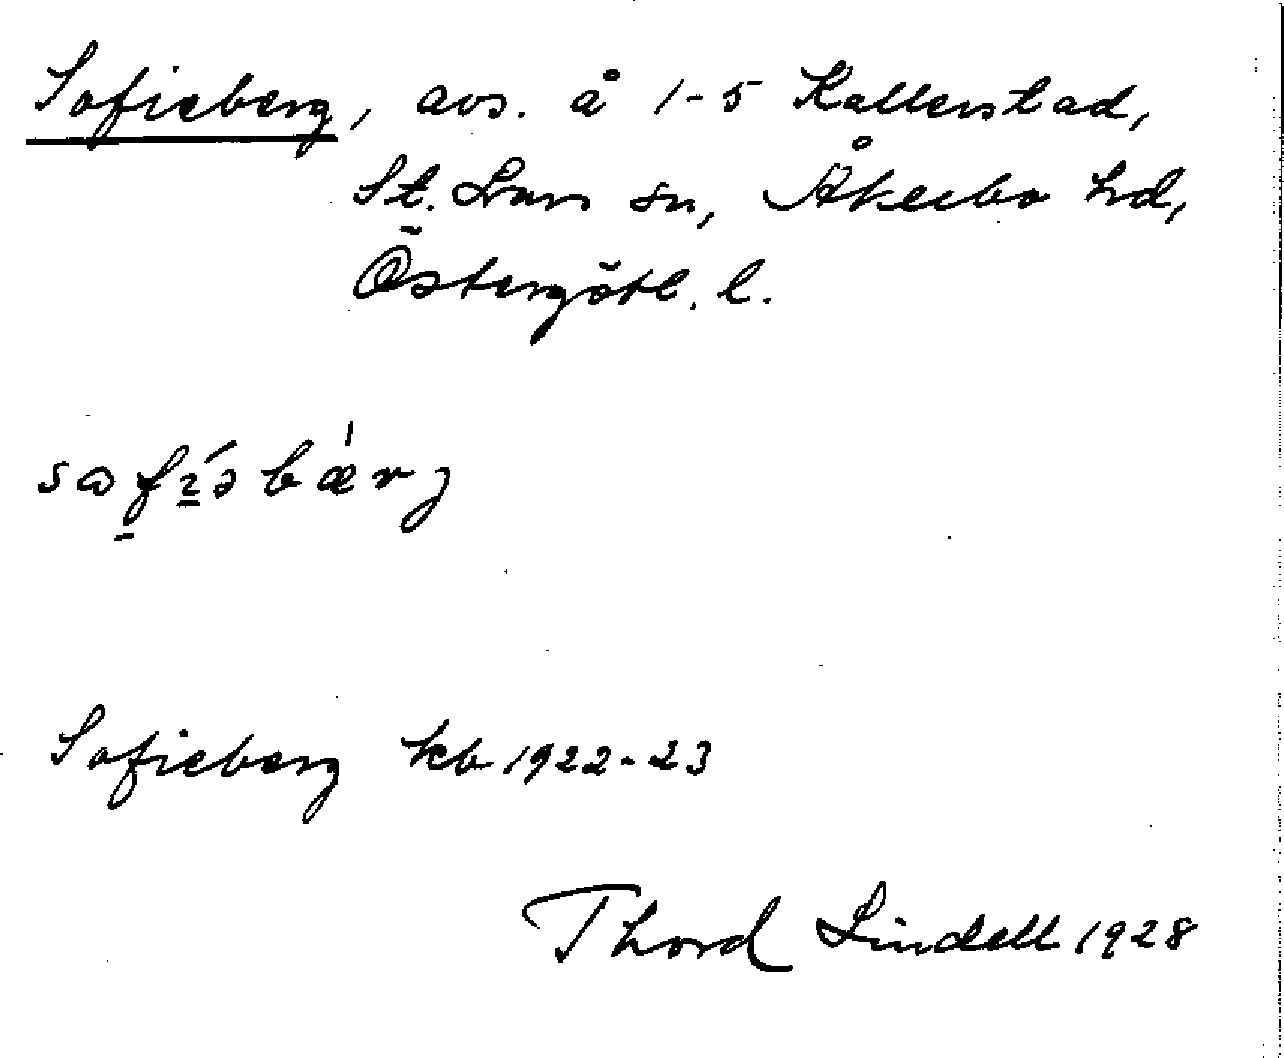 Sofieberg, avs. å 1-5 Kallerstad,
St. Lars sn, Åkerbo hd,
Östergötl. l.
Sofieberg kb 1922-23
Thord Lindell 1928